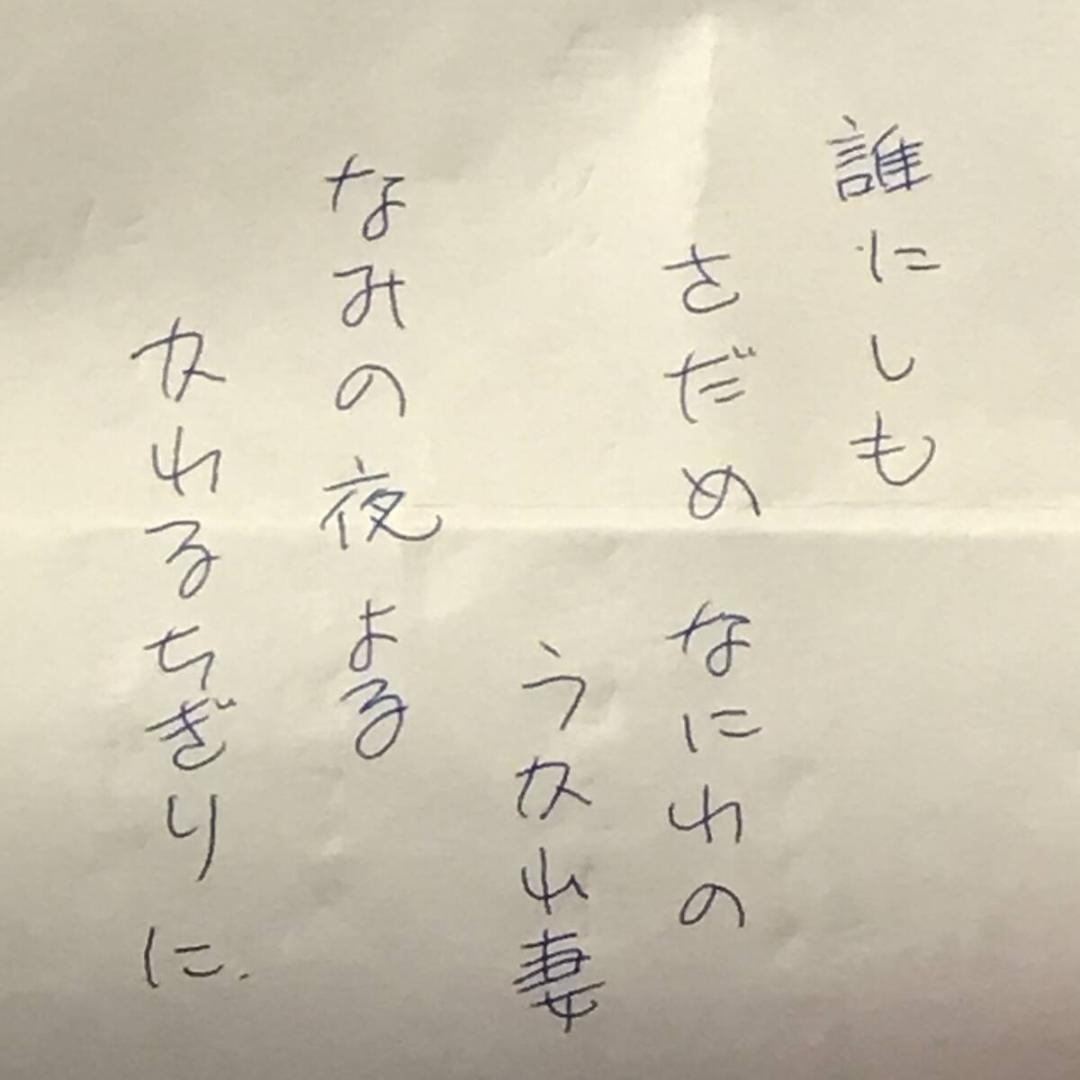 誰にしも
さだめ なにわの
うかれ妻
なみの夜よる
かわるちぎりに